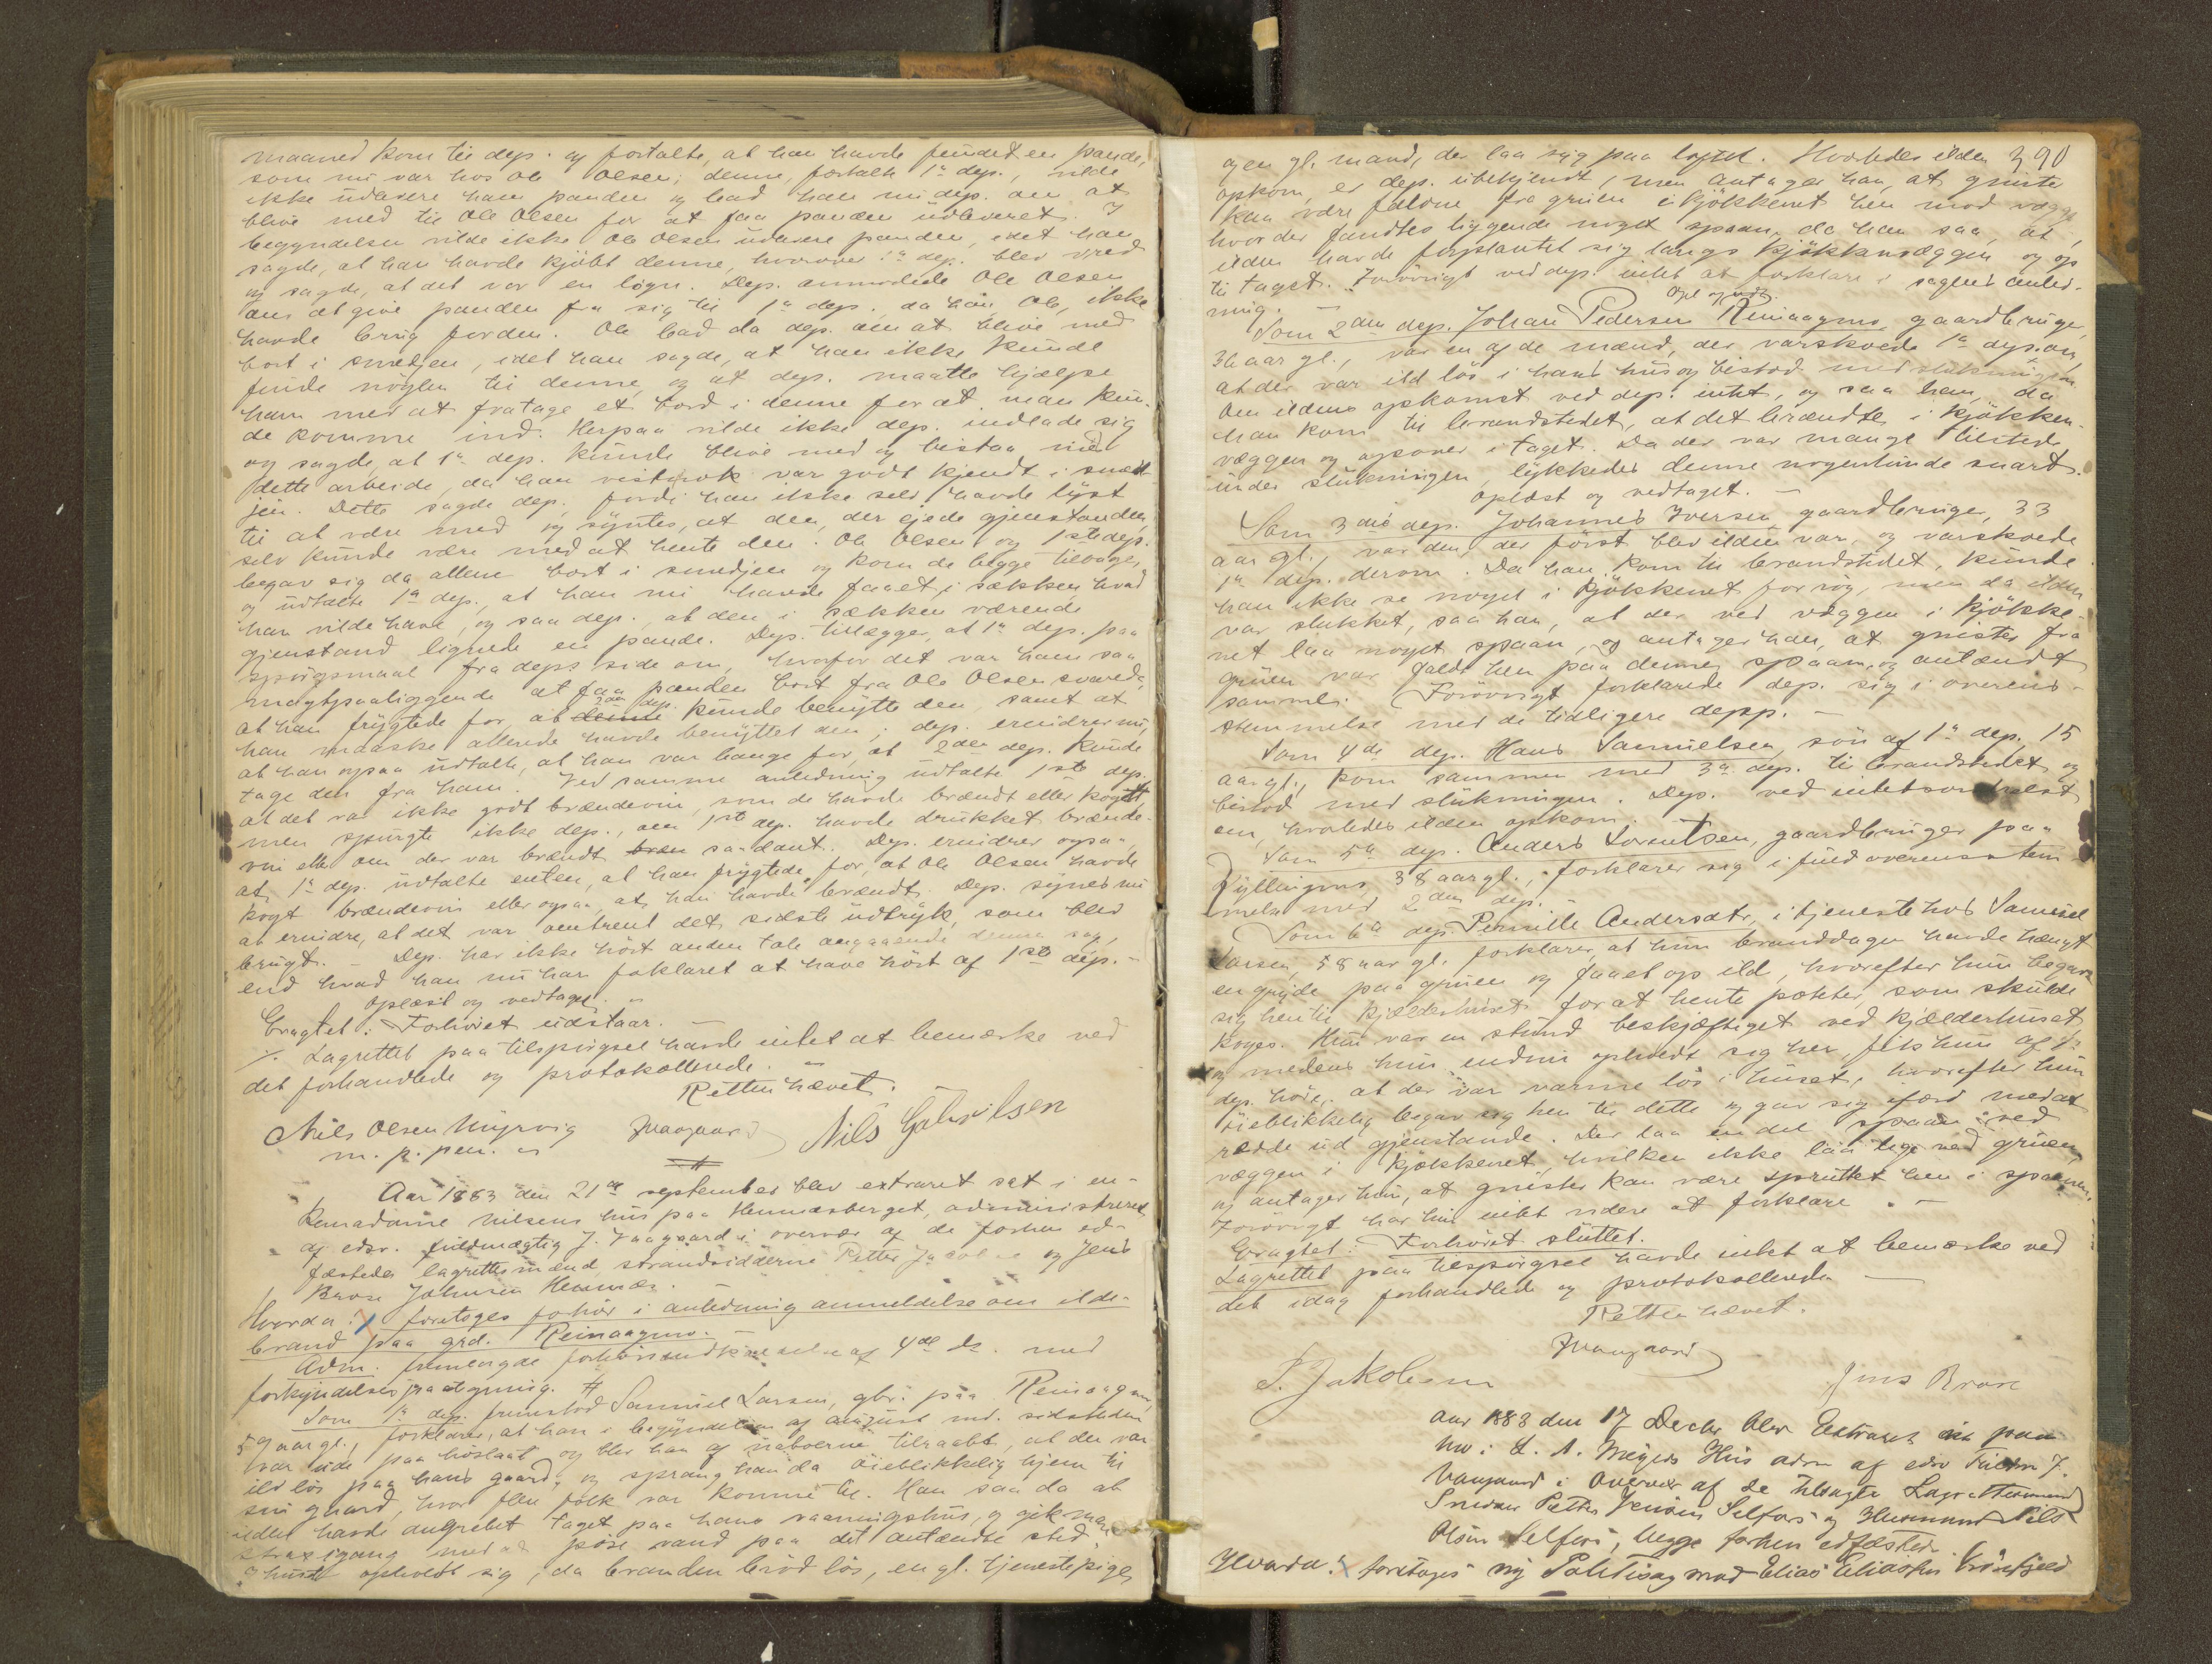 maaned kom til dep. og fortalte, at han havde fundet en pande,
som nu var hos Ole Olsen; denne, fortalte 1ª dep., vilde
ikke udlevere ham panden og bad han nu dep. om at
blive med til Ole Olsen for at faa panden udleveret. I
begyndelsen vilde ikke Ole Olsen udlevere panden, idet han
sagde, at han havde kjöbt denne, hvorover 1ª dep. blev vred
og sagde, at det var en lögn. Dep. anmodede Ole Olsen
om at give panden fra sig til 1ª dep., da han Ole, ikke
havde brug for den. Ole bad da dep. om at blive med
bort i smedjen, idet han sagde, at han ikke kunde
finde nöglen til denne, og at dep. maatte hjælpe
ham med at fratage et bord i denne for at man kun-
de komme ind. Herpaa vilde ikke dep. indlade sig
og sagde, at 1ª dep. kunde blive med og bistaa med
dette arbeide, da han vistnok var godt kjendt i smed-
jen. Dette sagde dep., fordi han ikke selv havde lyst
til at være med og syntes, at den, der eiede gjenstanden,
selv kunde være med at hente den. Ole Olsen og 1ste dep.
begav sig da allene bort i smedjen og kom de begge tilbage,
og udtalte 1ª dep., at han nu havde faaet i sækken, hvad
han vilde have, og saa dep., at den i sækken værende
gjenstand lignede en pande. Dep. tillægger, at 1ª dep. paa
spörgsmaal fra deps side om, hvorfor det var ham saa
magtpaaliggende at faa panden bort fra Ole Olsen svarede,
at han frygtede for, at denne 2den dep. kunde benytte den, samt at
han maaske allerede havde benyttet den; dep. erindrer nu,
at han ogsaa udtalte, at han var bange for, at 2den dep. kunde
tage den fra ham. Ved samme anledning udtalte 1ste dep.
at det var ikke godt brændevin, som de havde brændt eller kogt,
men spurgte ikke dep., om 1ste dep. havde drukket brænde-
vin eller om der var brændt bræn saadant. Dep. erindrer ogsaa,
at 1ª dep. udtalte enten, at han frygtede for, at Ole Olsen havde
kogt brændevin eller ogsaa, at han havde brændt. Dep. synes nu
at erindre, at det var omtrent det sidste udtryk, som blev
brugt. – Dep. har ikke hört anden tale angaaende denne sag,
end hvad han nu har foklaret at have hört af 1ste dep. –
Oplæst og vedtaget. –
Eragtet: Forhöret udstaar. –
Lagrettet paa tilspörgsel havde intet at bemærke ved
det forhandlede og protokollerede. –
Retten hævet.
Nils Olsen Myrvig Vaagaard Nils Gabrilsen
m. p. pen.
Aar 1883 den 21de september blev extraret sat i en-
kemadame Nilsens hus paa Hemnæsberget, administreret
af edsv. fuldmægtig J. Vaagaard i overvær af de forhen ed-
fæstede lagrettesmænd, strandsidderne Petter Jacobsen og Jens
Brose Johnsen Hemnæs. –
Hvorda: foretoges forhör i anledning anmeldelse om ilde-
brand paa grd. Reinaagmo. –
Adm. fremlagde forhörsindkaldelse af 4de ds. med
forkyndelsespaategning. #
Som 1ª dep. fremstod Samuel Larsen, gbr. paa Reinaagmo,
59 aar gl., forklarer, at han i begyndelsen af august md. sidstleden
var ude paa höslaat og blev han af naboerne tilraabt, at der var
ild lös paa hans gaard, og sprang han da öieblikkelig hjem til
sin gaard, hvor flere folk var komne til. Han saa da at
ilden havde angrebet taget paa hans vaaningshus, og gik man
strax igang med at pöse vand paa det antændte sted.
I huset opholdt sig, da branden bröd lös, en gl. tjenestepige
390
og en gl. mand, der laa syg paa loftet. Hvorledes ilden
opkom, er dep. ubekjendt, men antager han, at gnister
kan være faldne fra gruen i kjökkenet hen mod vægg
hvor der fandtes liggende noget spaan, da han saa, at
ilden havde forplantet sig langs kjökkenvæggen og op
til taget. Forövrigt ved dep. intet at forklare i sagens anled-
ning. – Opl. og vedt.
Som 2den dep. Johan Pedersen Reinaagmo, gaardbruger,
36 aar gl., var en af de mænd, der varskoede 1ª dep. om,
at der var ild lös i hans hus og bistod med slukningen.
Om ildens opkomst ved dep. intet, og saa han, da
han kom til brandstedet, at det brændte i kjökken-
væggen og opover i taget. Da der var mange tilstede
under slukningen, lykkedes denne nogenlunde snart.
Oplæst og vedtaget. –
Som 3die dep. Johannes Iversen, gaardbruger, 33
aar gl., var den, der först blev ilden var, og varskoede
1ª dep. derom. Da han kom til brandstedet, kunde
han ikke se noget i kjökkenet for røg, men da ilden
var slukket, saa han, at der ved væggen i kjökke-
net laa noget spaan, og antager han, at gnister fra
gruen var faldt hen paa denne spaan og antændt
samme. Forövrigt forklarede dep. sig i overens-
stemmelse med de tidligere depp. –
Som 4de dep. Hans Samuelsen, sön af 1ª dep., 15
aar gl., kom sammen med 3ª dep. til brandstedet og
bistod med slukningen. Dep. ved intetsomhelst
om, hvorledes ilden opkom. –
Som 5ª dep. Anders Sorentsen, gaardbruger paa
Kyllingmo, 38 aar gl., forklarer sig i fuld overensstem
melse med 2den dep. –
Som 6ª dep. Pernille Andersdtr., i tjeneste hos Samuel
Larsen, 58 aar gl. forklarer, at hun branddagen havde hængt
en gryde paa gruen og faaet op ild, hvorefter hun begav
sig hen til kjælderhuset for at hente poteter, som skulde
koges. Hun var en stund beskjæftiget ved kjælderhuset,
og medens hun endnu opholdt sig her, fik hun af 1ª
dep. höre, at der var varme lös i huset, hvorefter hun
öieblikkelig begav sig hen til dette og gav sig ifærd med at
redde ud gjenstande. Der laa en del spaan ved
væggen i kjökkenet, hvilken ikke laa lige ved gruen,
og antager hun, at gnister kan være spruttet hen i spaanen.
Forövrigt har hun intet videre at forklare. –
Eragtet: Forhöret sluttet.
Lagrettet paa tilspörgsel havde intet at bemærke ved
det idag forhandlede og protokollerede. –
Retten hævet.
Vaagaard
P. Jakobsen Jens Brose
Aar 1883 den 17 Decbr blev Extraret sat paa
Mo i L. A. Meyers Hus adm af edsv Fuldm J.
Vaagaard i Overvær af de tilsagte Lagrettesmænd
Snedker Petter Jensen Selfors og Husmand Nils
Olsen Selfors, begge forhen edfæstede
Hvorda: foretoges ny Politisag mod Elias Eliassen